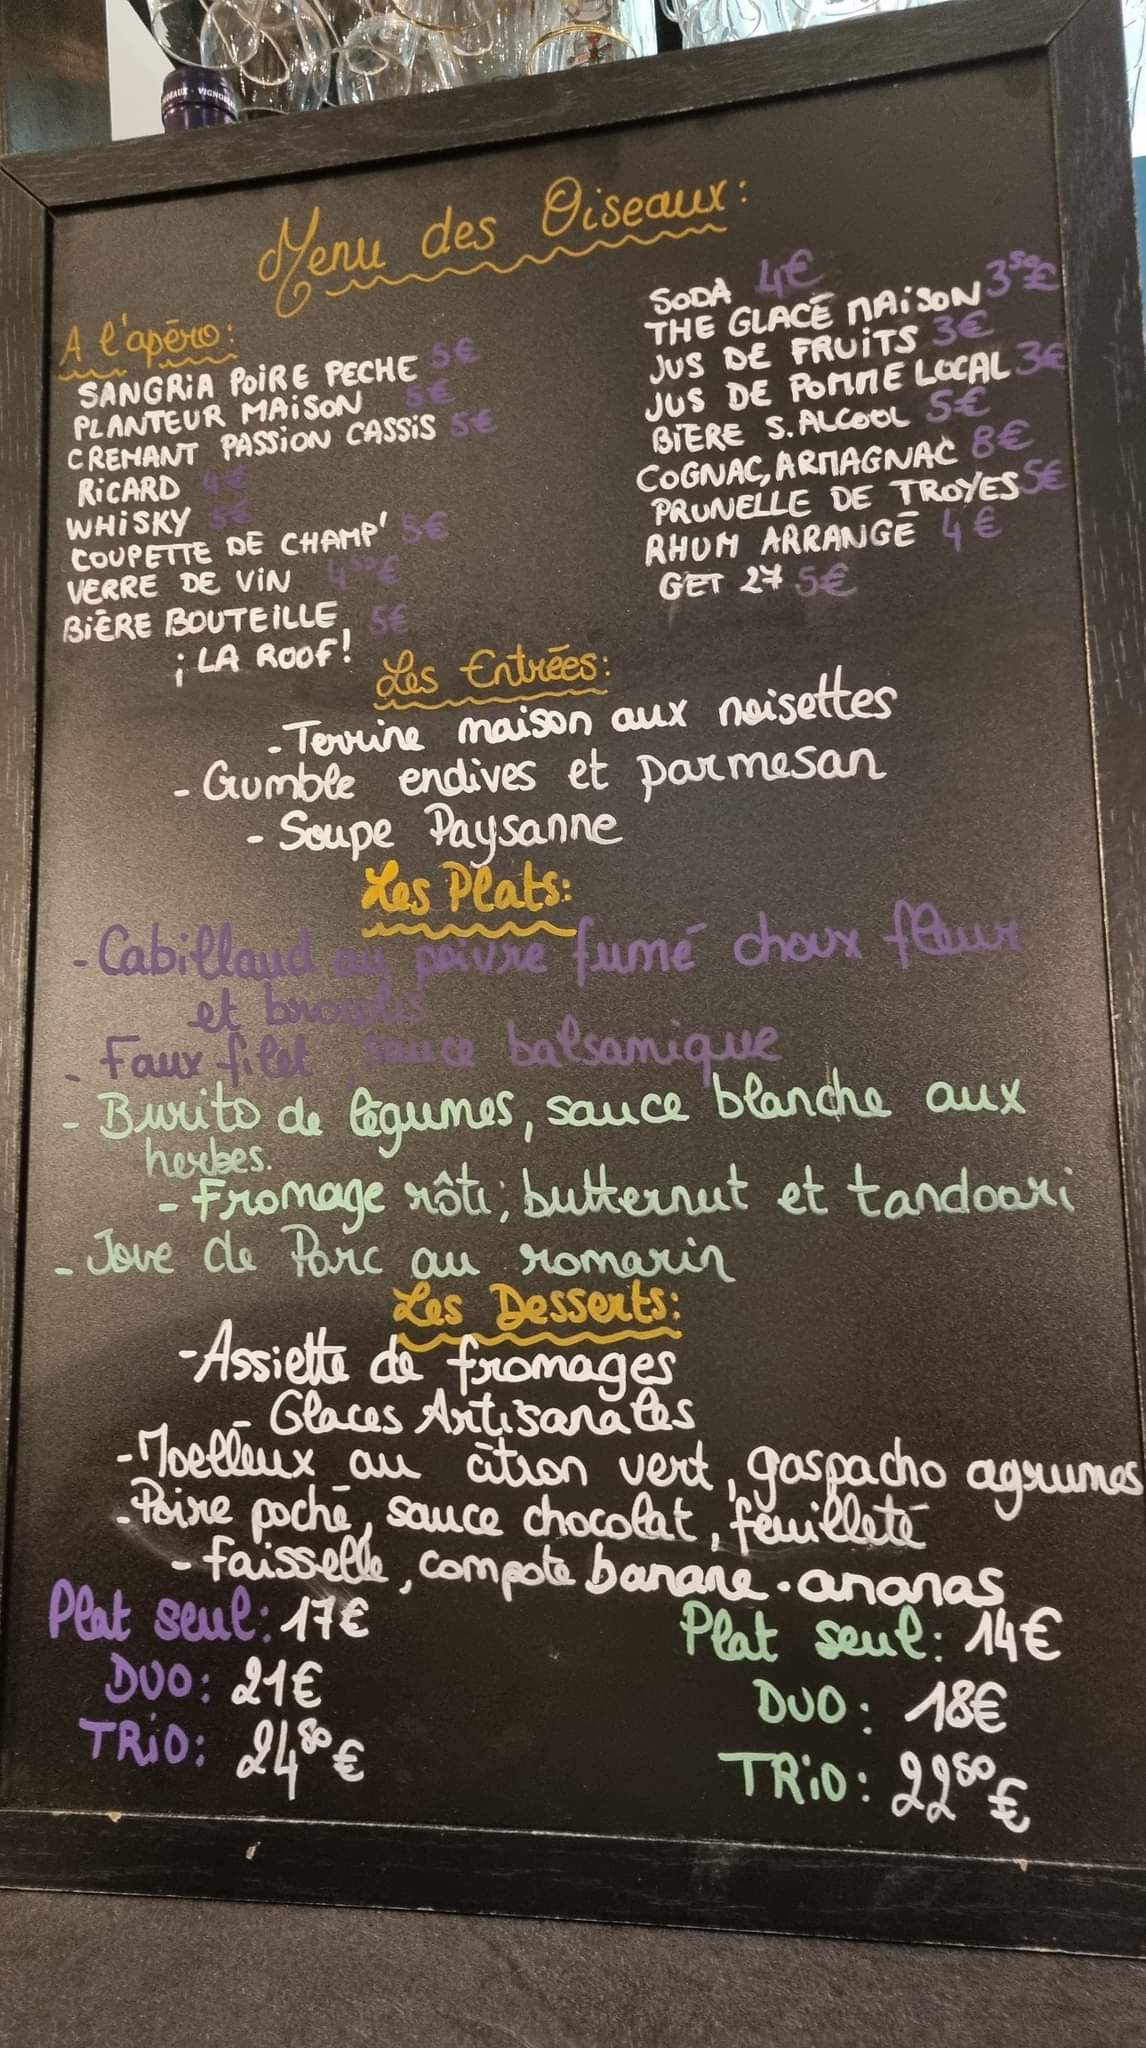 DEAUX - VIGNOBLE
Menu des Oiseaux :
A l'apéro :
SANGRIA POIRE PECHE 5€
PLANTEUR MAISON 5€
CREMANT PASSION CASSIS 5€
RICARD 4€
WHISKY 5€
COUPETTE DE CHAMP' 5€
VERRE DE VIN 4⁵⁰€
BIÈRE BOUTEILLE 5€
¡ LA ROOF !
SODA 4€
THE GLACÉ MAISON 3⁵⁰€
JUS DE FRUITS 3€
JUS DE POMME LOCAL 3€
BIÈRE S. ALCOOL 5€
COGNAC, ARMAGNAC 8€
PRUNELLE DE TROYES 5€
RHUM ARRANGÉ 4€
GET 27 5€
Les Entrées :
- Terrine maison aux noisettes
- Crumble endives et parmesan
- Soupe Paysanne
Les Plats :
- Cabillaud au poivre fumé choux fleur
et brocolis
- Faux filet, sauce balsamique
- Burito de légumes, sauce blanche aux
herbes.
- Fromage rôti, butternut et tandoori
- Joue de Porc au romarin
Les Desserts :
- Assiette de fromages
- Glaces Artisanales
- Moelleux au citron vert, gaspacho agrumes
- Poire poché, sauce chocolat, feuilleté
- faisselle, compote banane - ananas
Plat seul : 17€
DUO : 21€
TRIO : 24⁵⁰€
Plat seul : 14€
DUO : 18€
TRIO : 22⁵⁰€